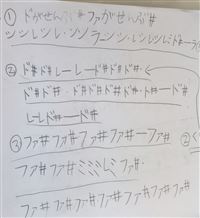 ① ドがぜんぶ# ファがぜんぶ#
ソソレソレ・ソソ ラーソソ・レソレソミド#ーライ
② ド#ド#レーレード#ド#ド#・
ド#ド#・ド#ド#ド#ド#・ド#ード#
レーレド#ーード#
③ ファ#ファ#ファ#ファ#ーファ#
② く
ファ#ファ#ミミミレミファ#・
ファ#ファ#ファ#ファ#ファ#ファ#ファ#